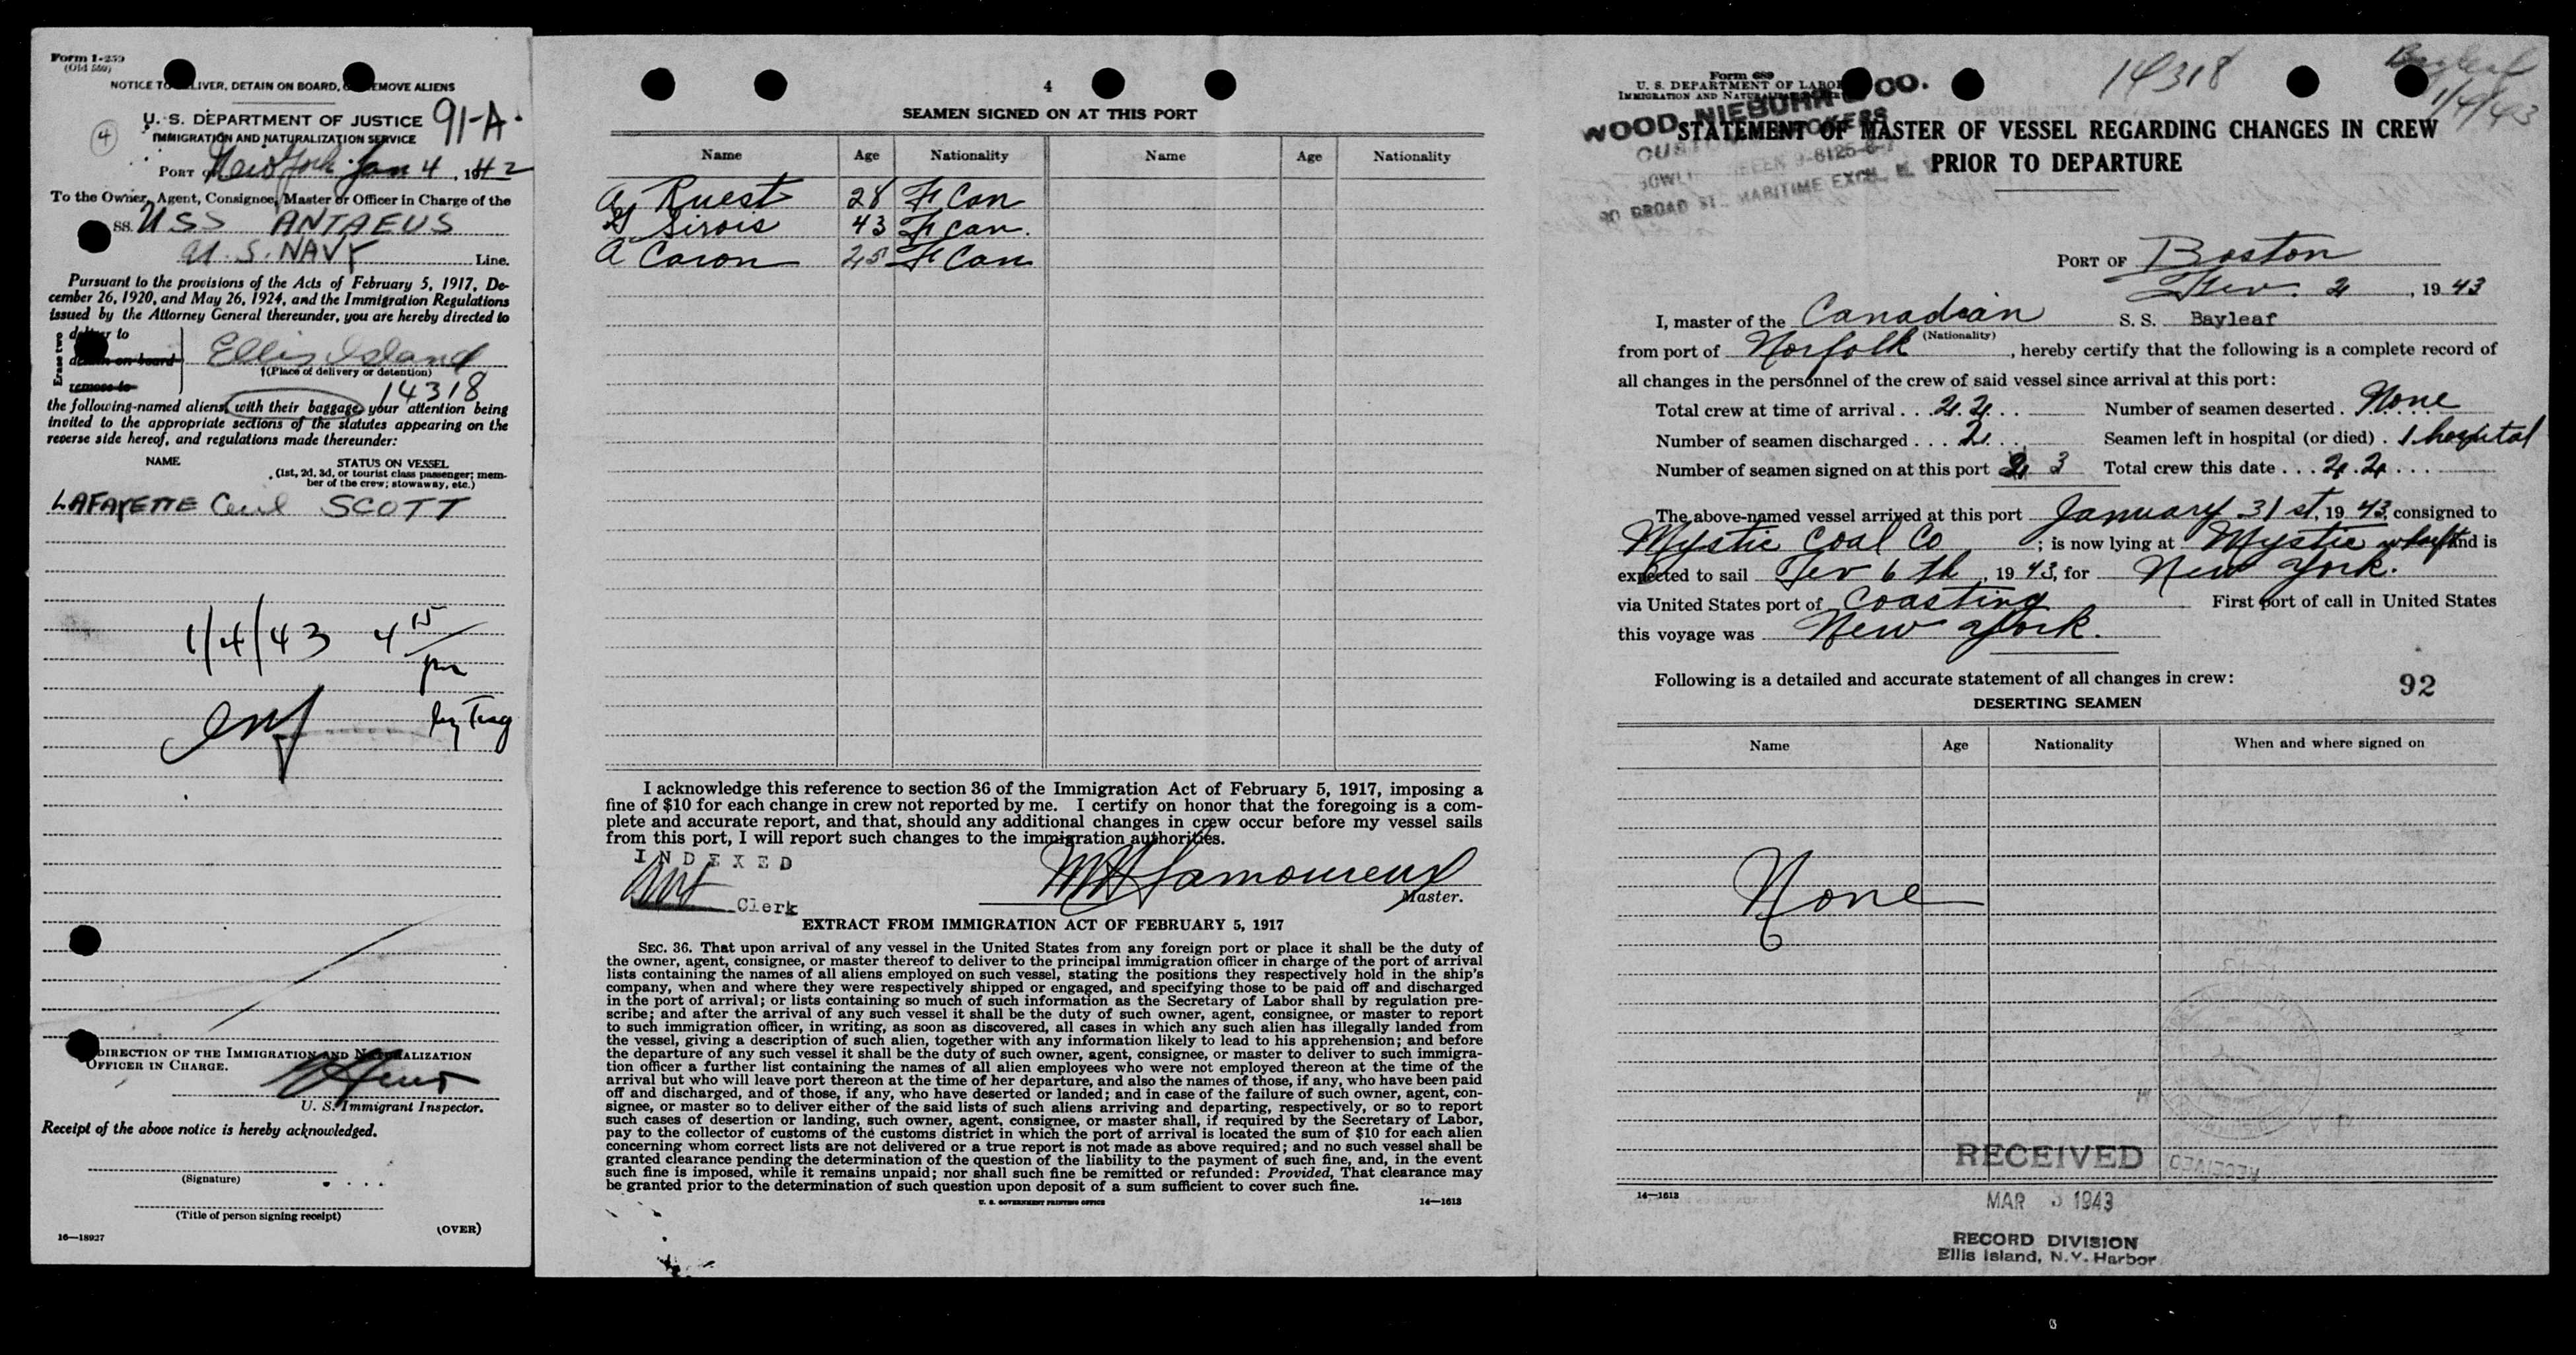 Form I-259
(Old 580)
NOTICE TO DELIVER, DETAIN ON BOARD, OR REMOVE ALIENS
U. S. DEPARTMENT OF JUSTICE 91-A
4
IMMIGRATION AND NATURALIZATION SERVICE
PORT of New York Jan 4, 1942
To the Owner, Agent, Consignee, Master or Officer in Charge of the
SS. USS ANTAEUS
U.S. NAVY Line.
Pursuant to the provisions of the Acts of February 5, 1917, De-
cember 26, 1920, and May 26, 1924, and the Immigration Regulations
issued by the Attorney General thereunder, you are hereby directed to
Erase two
deliver to
detain on board
remove to
Ellis Island
†(Place of delivery or detention)
14318
the following-named aliens, with their baggage, your attention being
invited to the appropriate sections of the statutes appearing on the
reverse side hereof, and regulations made thereunder:
NAME
STATUS ON VESSEL
(1st, 2d, 3d, or tourist class passenger; mem-
ber of the crew; stowaway, etc.)
LAFAYETTE Cecil SCOTT
1/4/43 4 15
pm
DIRECTION OF THE IMMIGRATION AND NATURALIZATION
OFFICER IN CHARGE.
U. S. Immigrant Inspector.
Receipt of the above notice is hereby acknowledged.
(Signature)
(Title of person signing receipt)
(OVER)
16—18927
4
SEAMEN SIGNED ON AT THIS PORT
Name Age Nationality Name Age Nationality
A Ruest 28 F Can
G Sirois 43 F Can.
A Caron 25 F Can
I acknowledge this reference to section 36 of the Immigration Act of February 5, 1917, imposing a
fine of $10 for each change in crew not reported by me. I certify on honor that the foregoing is a com-
plete and accurate report, and that, should any additional changes in crew occur before my vessel sails
from this port, I will report such changes to the immigration authorities.
INDEXED
Clerk
Lamoureux
Master.
EXTRACT FROM IMMIGRATION ACT OF FEBRUARY 5, 1917
SEC. 36. That upon arrival of any vessel in the United States from any foreign port or place it shall be the duty of
the owner, agent, consignee, or master thereof to deliver to the principal immigration officer in charge of the port of arrival
lists containing the names of all aliens employed on such vessel, stating the positions they respectively hold in the ship's
company, when and where they were respectively shipped or engaged, and specifying those to be paid off and discharged
in the port of arrival; or lists containing so much of such information as the Secretary of Labor shall by regulation pre-
scribe; and after the arrival of any such vessel it shall be the duty of such owner, agent, consignee, or master to report
to such immigration officer, in writing, as soon as discovered, all cases in which any such alien has illegally landed from
the vessel, giving a description of such alien, together with any information likely to lead to his apprehension; and before
the departure of any such vessel it shall be the duty of such owner, agent, consignee, or master to deliver to such immigra-
tion officer a further list containing the names of all alien employees who were not employed thereon at the time of the
arrival but who will leave port thereon at the time of her departure, and also the names of those, if any, who have been paid
off and discharged, and of those, if any, who have deserted or landed; and in case of the failure of such owner, agent, con-
signee, or master so to deliver either of the said lists of such aliens arriving and departing, respectively, or so to report
such cases of desertion or landing, such owner, agent, consignee, or master shall, if required by the Secretary of Labor,
pay to the collector of customs of the customs district in which the port of arrival is located the sum of $10 for each alien
concerning whom correct lists are not delivered or a true report is not made as above required; and no such vessel shall be
granted clearance pending the determination of the question of the liability to the payment of such fine, and, in the event
such fine is imposed, while it remains unpaid; nor shall such fine be remitted or refunded: Provided, That clearance may
be granted prior to the determination of such question upon deposit of a sum sufficient to cover such fine.
U. S. GOVERNMENT PRINTING OFFICE 14—1613
Form 689
U. S. DEPARTMENT OF LABOR
IMMIGRATION AND NATURALIZATION
14318
Bayleaf
1/4/43
WOOD, NIEBUHR & CO.
STATEMENT OF MASTER OF VESSEL REGARDING CHANGES IN CREW
PRIOR TO DEPARTURE
90 BROAD ST., MARITIME EXCH.
PORT OF Boston
Fev. 2, 1943
I, master of the Canadian S. S. Bayleaf
(Nationality)
from port of Norfolk, hereby certify that the following is a complete record of
all changes in the personnel of the crew of said vessel since arrival at this port:
Total crew at time of arrival . . . 22 . . Number of seamen deserted . None
Number of seamen discharged . . . 2 . . Seamen left in hospital (or died) . 1 hospital
Number of seamen signed on at this port 3 Total crew this date . . . 22 . . .
The above-named vessel arrived at this port January 31st, 1943, consigned to
Mystic Coal Co ; is now lying at Mystic wharf and is
expected to sail Fev 6th, 1943, for New York.
via United States port of Coasting First port of call in United States
this voyage was New York.
Following is a detailed and accurate statement of all changes in crew:
92
DESERTING SEAMEN
Name Age Nationality When and where signed on
None
RECEIVED
14—1613
MAR 3 1943
RECORD DIVISION
Ellis Island, N.Y. Harbor